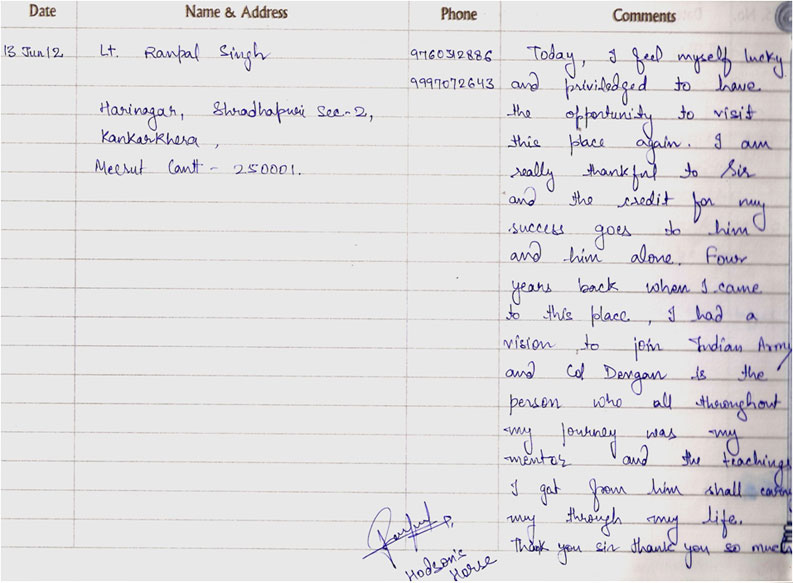 Date Name & Address Phone Comments
13 Jun 12 Lt. Ranpal Singh 9760312886 Today, I feel myself lucky
9997072643 and priviledged to have
Harinagar, Shradhapuri Sec-2, the opportunity to visit
Kankarkhera, this place again. I am
Meerut Cantt - 250001. really thankful to Sir
and the credit for my
success goes to him
and him alone. Four
years back when I came
to this place, I had a
vision to join Indian Army
and Col Dengan is the
person who all throughout
my journey was my
mentor and the teachings
I got from him shall carry
my through my life.
Thank you sir thank you so much
Hodson's
Horse